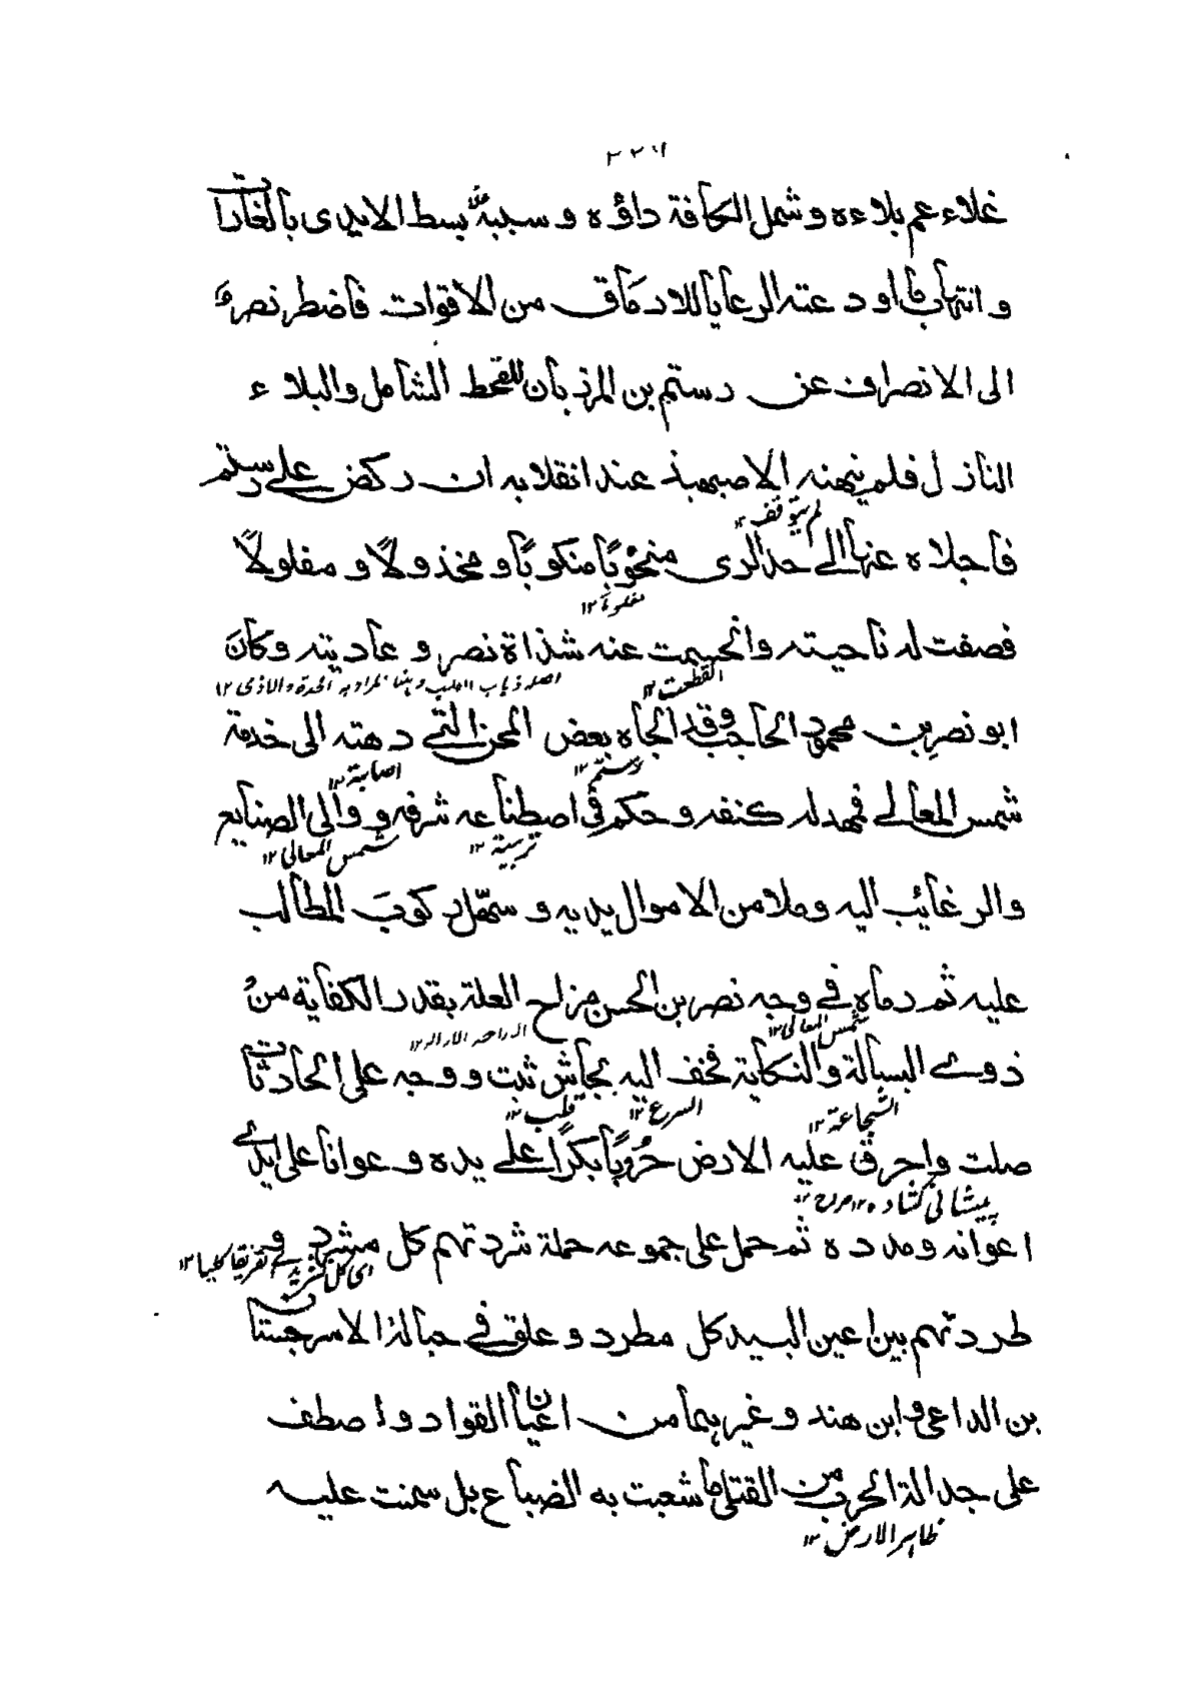 غلاء عم بلاءه و شمل الكافة داؤه و سببهُ بسط الايدى بالغارات
و انتهاب ما اودعته الرعايا للارماق من الاقوات فاضطر نصر
الى الانصراف عن رستم بن المرزبان للقحط الشامل والبلاء
النازل فلم ينهنه الاصبهبذ عند انقلابه ان ركض على رستم
لم يتوقف ١٢
فاجلاه عنها الى حد الرى منخوبًا منكوبًا و مخذولًا و مفلولًا
فصفت له ناحيته وانحسمت عنه شذاة نصر و عاديته وكان
القطعت ١٢
ابو نصر بن محمود الحاجب وقد الجاه بعض المحن التى دهته الى خدمة
اصابته ١٢
شمس المعالى فمهد له كنفه و حكم فى اصطناعه شرفه و والى الصنايع
تربية ١٢ شمس المعالى ١٢
والرغائب اليه وملا من الاموال يديه و سهّل ركوبَ المطالب
عليه ثم رماه فى وجه نصر بن الحسن مزاح العلة بقدر الكفاية منْ
شمس المعالى ١٢
ذوى البسالة والنكاية فخف اليه بجاش ثبت و وجه على الحادثات
الشجاعة ١٢ السرع ١٢ قلب ١٢
صلت واحرق عليه الارض حُروبًا بكرًا على يده و عوانا على ايدى
پيشانى كشاده ١٢
اعوانه ومدده ثم حمل على جموعه حملة شردتهم كل مشرد و
طردتهم بين اعين البيد كل مطرد و علق فى حبالة الاسر جستان
بن الداعى و ابن هند و غيرهما من اعيان القواد و اصطف
على جدالة الحرب من القتلى ما شعبت به الضباع بل سمنت عليه
ظاهر الارض ١٢